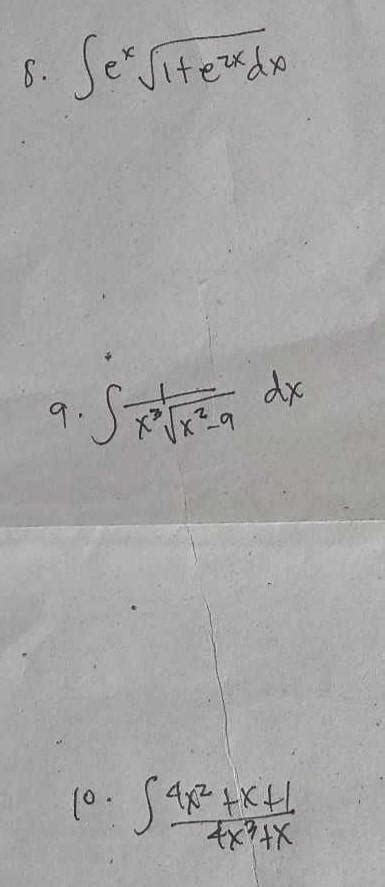 8. ∫e^x √(1+e^(2x)) dx
9. ∫ 1/(x^3 √(x^2-9)) dx
10. ∫ (4x^2+x+1)/(4x^3+x)